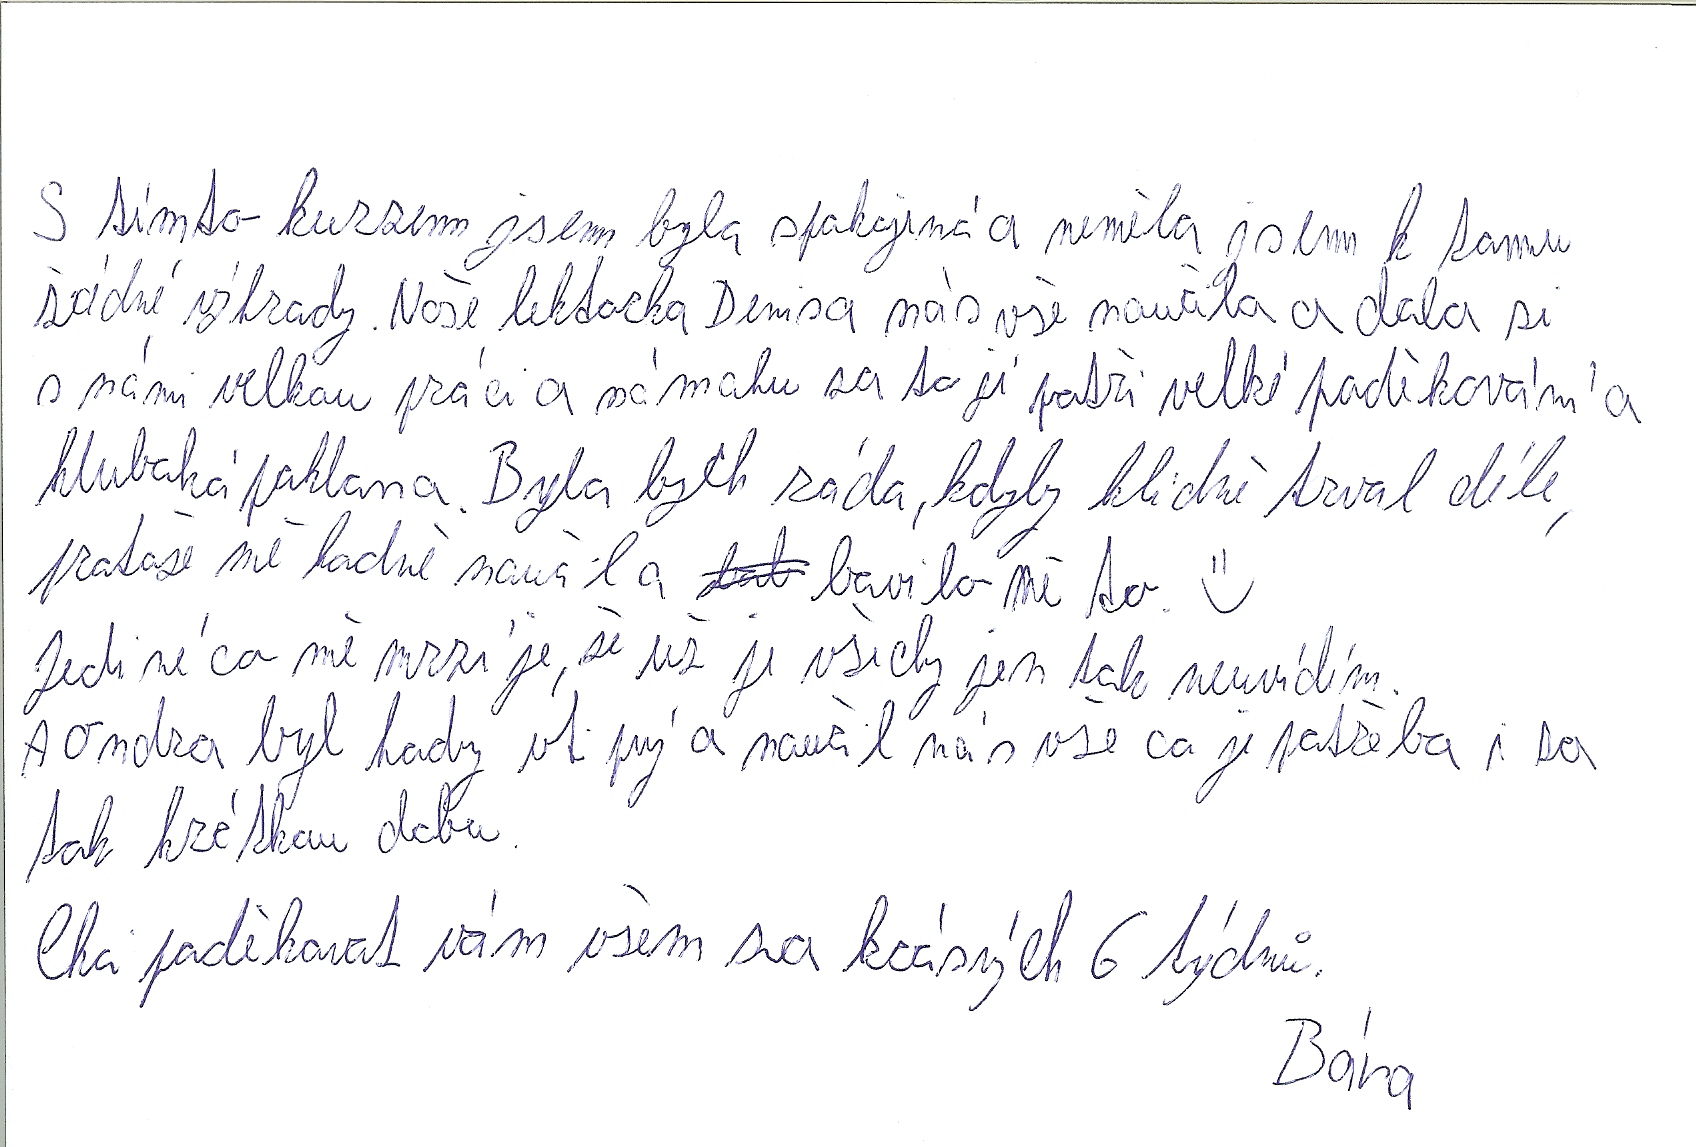 S tímto kurzem jsem byla spokojená a neměla jsem k tomu
žádné výhrady. Naše lektorka Denisa nás vše naučila a dala si
s námi velkou práci a námahu za to jí patři velké poděkování a
hluboká poklona. Byla bych ráda, kdyby klidně trval déle,
protože mě hodně naučil a bavilo mě to. :)
Jediné co mě mrzí je, že už je všichy jen tak neuvidím.
A Ondra byl hody vtipý a naučil nás vše co je potřeba i za
tak krátkou dobu.
Chci poděkovat vám všem za krásných 6 týdnů.
Bára